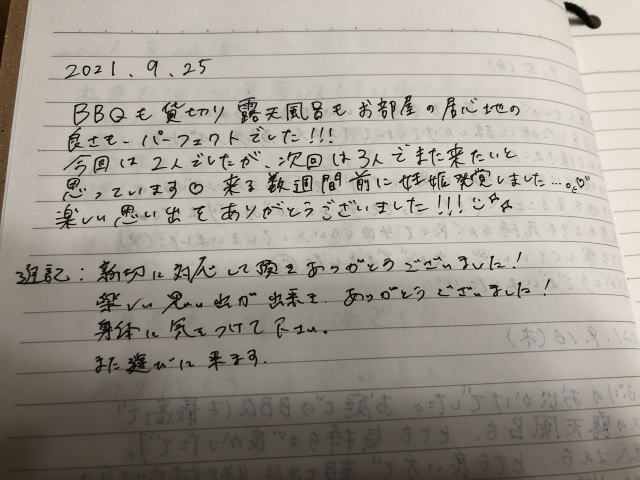 2021.9.25
BBQも貸切り露天風呂もお部屋の居心地の
良さもーパーフェクトでした!!!
今回は2人でしたが、次回は3人でまた来たいと
思っています♡ 来る数週間前に妊娠発覚しました…。♡"
楽しい思い出をありがとうございました!!!
追記:親切に対応して頂きありがとうございました!
楽しい思い出が出来き、ありがとうございました!
身体に気をつけて下さい。
また遊びに来ます。